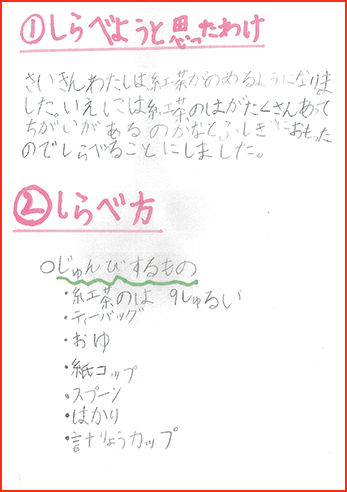 ①しらべようと思ったわけ
さいきんわたしは紅茶がのめるようになりま
した。いえには紅茶のはがたくさんあって
ちがいがあるのかなとふしぎにおもった
のでしらべることにしました。
②しらべ方
○じゅんびするもの
・紅茶のは 9しゅるい
・ティーバッグ
・おゆ
・紙コップ
・スプーン
・はかり
・計りょうカップ